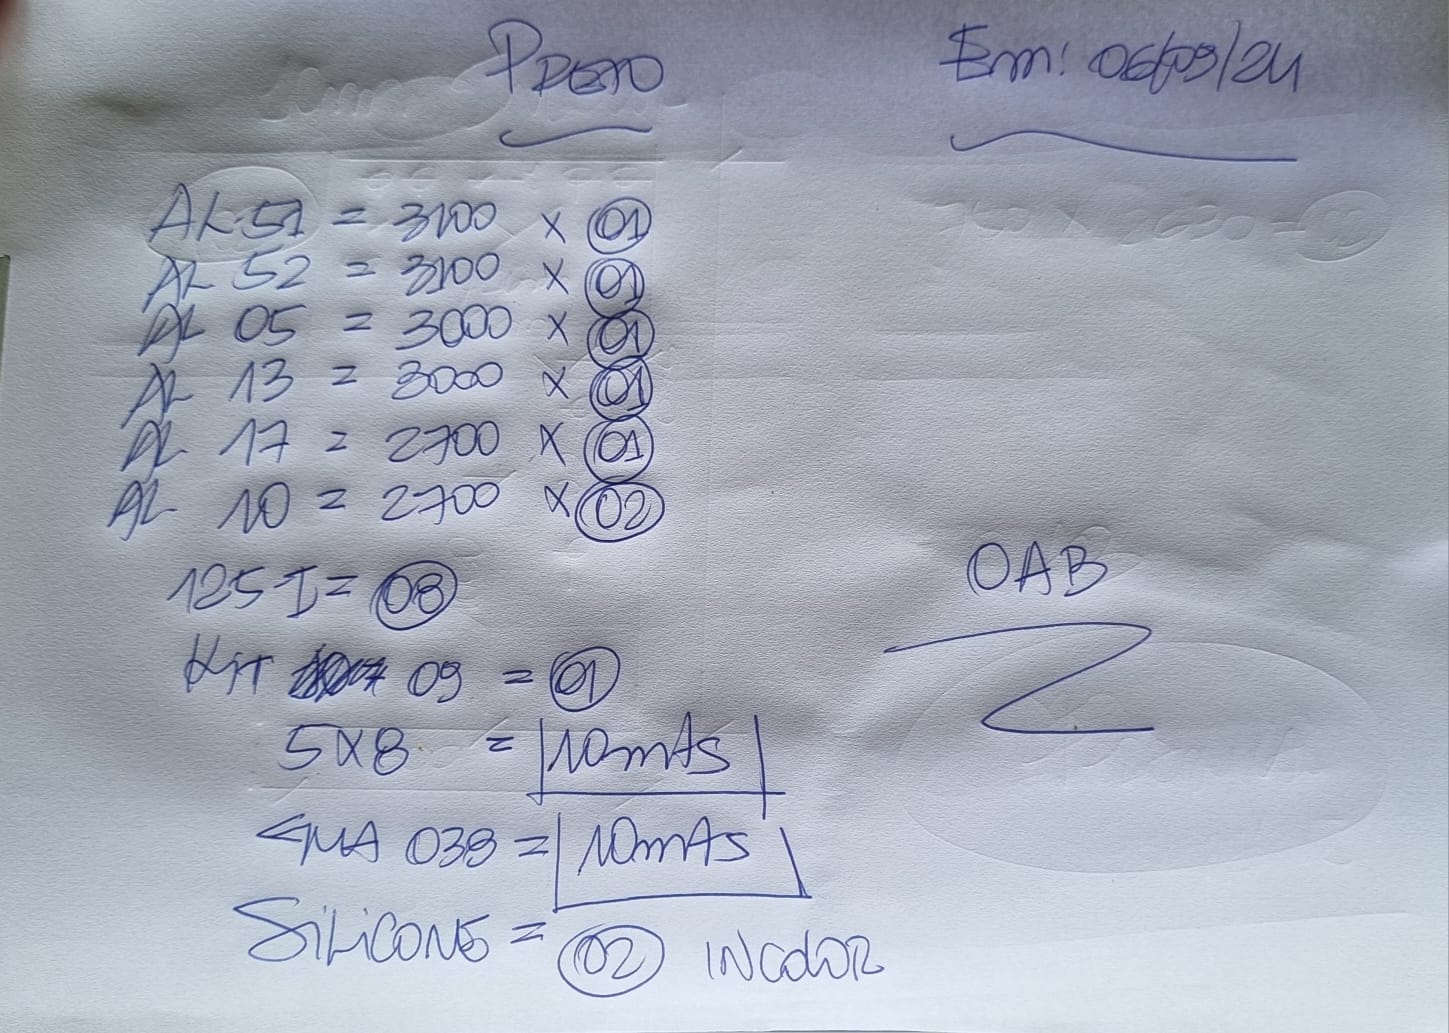 PRETO
Em: 06/09/24
AL 51 = 3100 x 01
AL 52 = 3100 x 01
AL 05 = 3000 x 01
AL 13 = 3000 x 01
AL 17 = 2700 x 01
AL 10 = 2700 x 02
125 I = 08
OAB
Kit 09 = 01
5x8 = 10mts
GUA 038 = 10mts
SiLiCONE = 02 INCOLOR